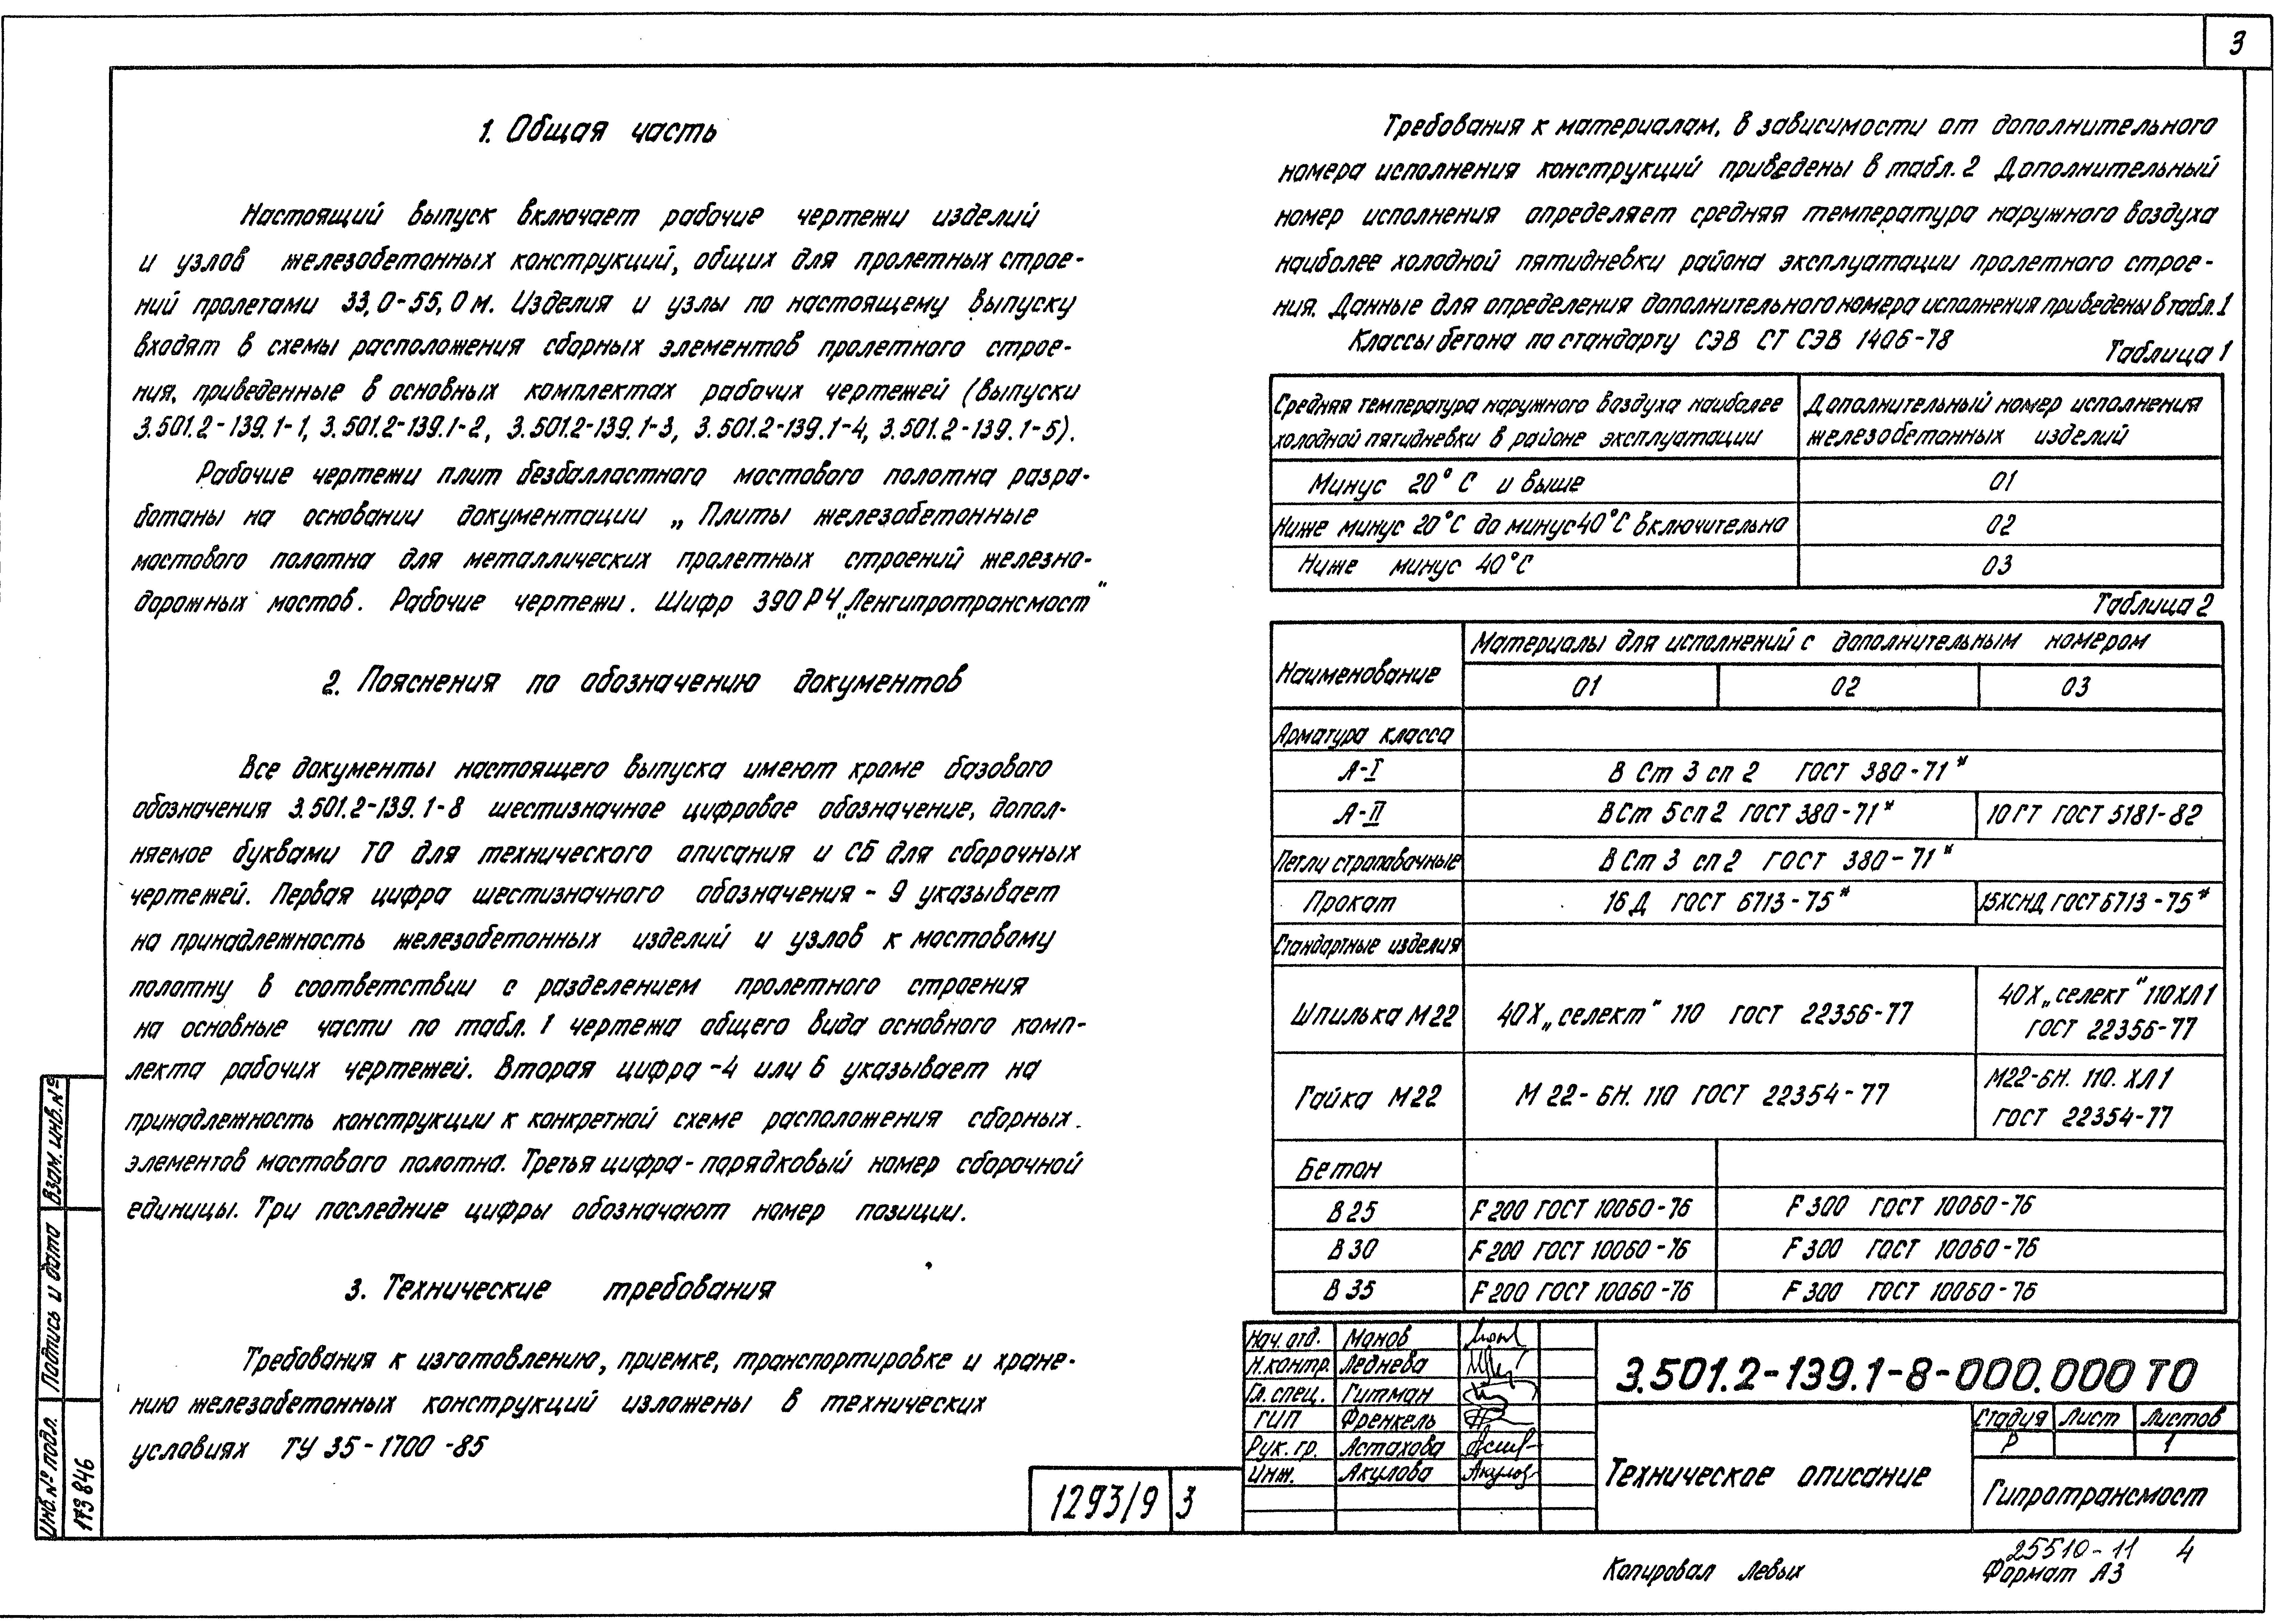 3
1. Общая часть
Настоящий выпуск включает рабочие чертежи изделий
и узлов железобетонных конструкций, общих для пролетных строе-
ний пролетами 33,0-55,0 м. Изделия и узлы по настоящему выпуску
входят в схемы расположения сборных элементов пролетного строе-
ния, приведенные в основных комплектах рабочих чертежей (выпуски
3.501.2-139.1-1, 3.501.2-139.1-2, 3.501.2-139.1-3, 3.501.2-139.1-4, 3.501.2-139.1-5).
Рабочие чертежи плит безбалластного мостового полотна разра-
ботаны на основании документации „Плиты железобетонные
мостового полотна для металлических пролетных строений железно-
дорожных мостов. Рабочие чертежи. Шифр 390РЧ „Ленгипротрансмост“
2. Пояснения по обозначению документов
Все документы настоящего выпуска имеют кроме базового
обозначения 3.501.2-139.1-8 шестизначное цифровое обозначение, допол-
няемое буквами ТО для технического описания и СБ для сборочных
чертежей. Первая цифра шестизначного обозначения - 9 указывает
на принадлежность железобетонных изделий и узлов к мостовому
полотну в соответствии с разделением пролетного строения
на основные части по табл. 1 чертежа общего вида основного комп-
лекта рабочих чертежей. Вторая цифра -4 или 6 указывает на
принадлежность конструкции к конкретной схеме расположения сборных
элементов мостового полотна. Третья цифра - порядковый номер сборочной
единицы. Три последние цифры обозначают номер позиции.
3. Технические требования
Требования к изготовлению, приемке, транспортировке и хране-
нию железобетонных конструкций изложены в технических
условиях ТУ 35-1700-85
Требования к материалам, в зависимости от дополнительного
номера исполнения конструкций приведены в табл. 2 Дополнительный
номер исполнения определяет средняя температура наружного воздуха
наиболее холодной пятидневки района эксплуатации пролетного строе-
ния. Данные для определения дополнительного номера исполнения приведены в табл. 1
Классы бетона по стандарту СЭВ СТ СЭВ 1406-78
Таблица 1
Средняя температура наружного воздуха наиболее холодной пятидневки в районе эксплуатации
Дополнительный номер исполнения железобетонных изделий
Минус 20°С и выше 01
Ниже минус 20°С до минус 40°С включительно 02
Ниже минус 40°С 03
Таблица 2
Наименование Материалы для исполнений с дополнительным номером
01 02 03
Арматура класса
А-I В Ст 3 сп 2 ГОСТ 380-71*
А-II ВСт 5сп2 ГОСТ 380-71* 10ГТ ГОСТ 5181-82
Петли строповочные В Ст 3 сп 2 ГОСТ 380-71*
Прокат 16Д ГОСТ 6713-75* 15ХСНД ГОСТ 6713-75*
Стандартные изделия
Шпилька М22 40Х „селект“ 110 ГОСТ 22356-77 40Х „селект“ 110ХЛ1
ГОСТ 22356-77
Гайка М22 М22-6Н. 110 ГОСТ 22354-77 М22-6Н. 110. ХЛ1
ГОСТ 22354-77
Бетон
В25 F200 ГОСТ 10060-76 F300 ГОСТ 10060-76
В30 F200 ГОСТ 10060-76 F300 ГОСТ 10060-76
В35 F200 ГОСТ 10060-76 F300 ГОСТ 10060-76
Нач. отд. Монов
Н.контр. Леднева
Гл. спец. Гитман
ГИП Френкель
Рук. гр. Астахова
Инж. Акулова
3.501.2-139.1-8-000.000 ТО
Техническое описание
Стадия Лист Листов
Р 1
Гипротрансмост
1293/9 3
Взам. инв. №
Подпись и дата
Инв. № подл.
173846
25510-11 4
Копировал Левых Формат А3